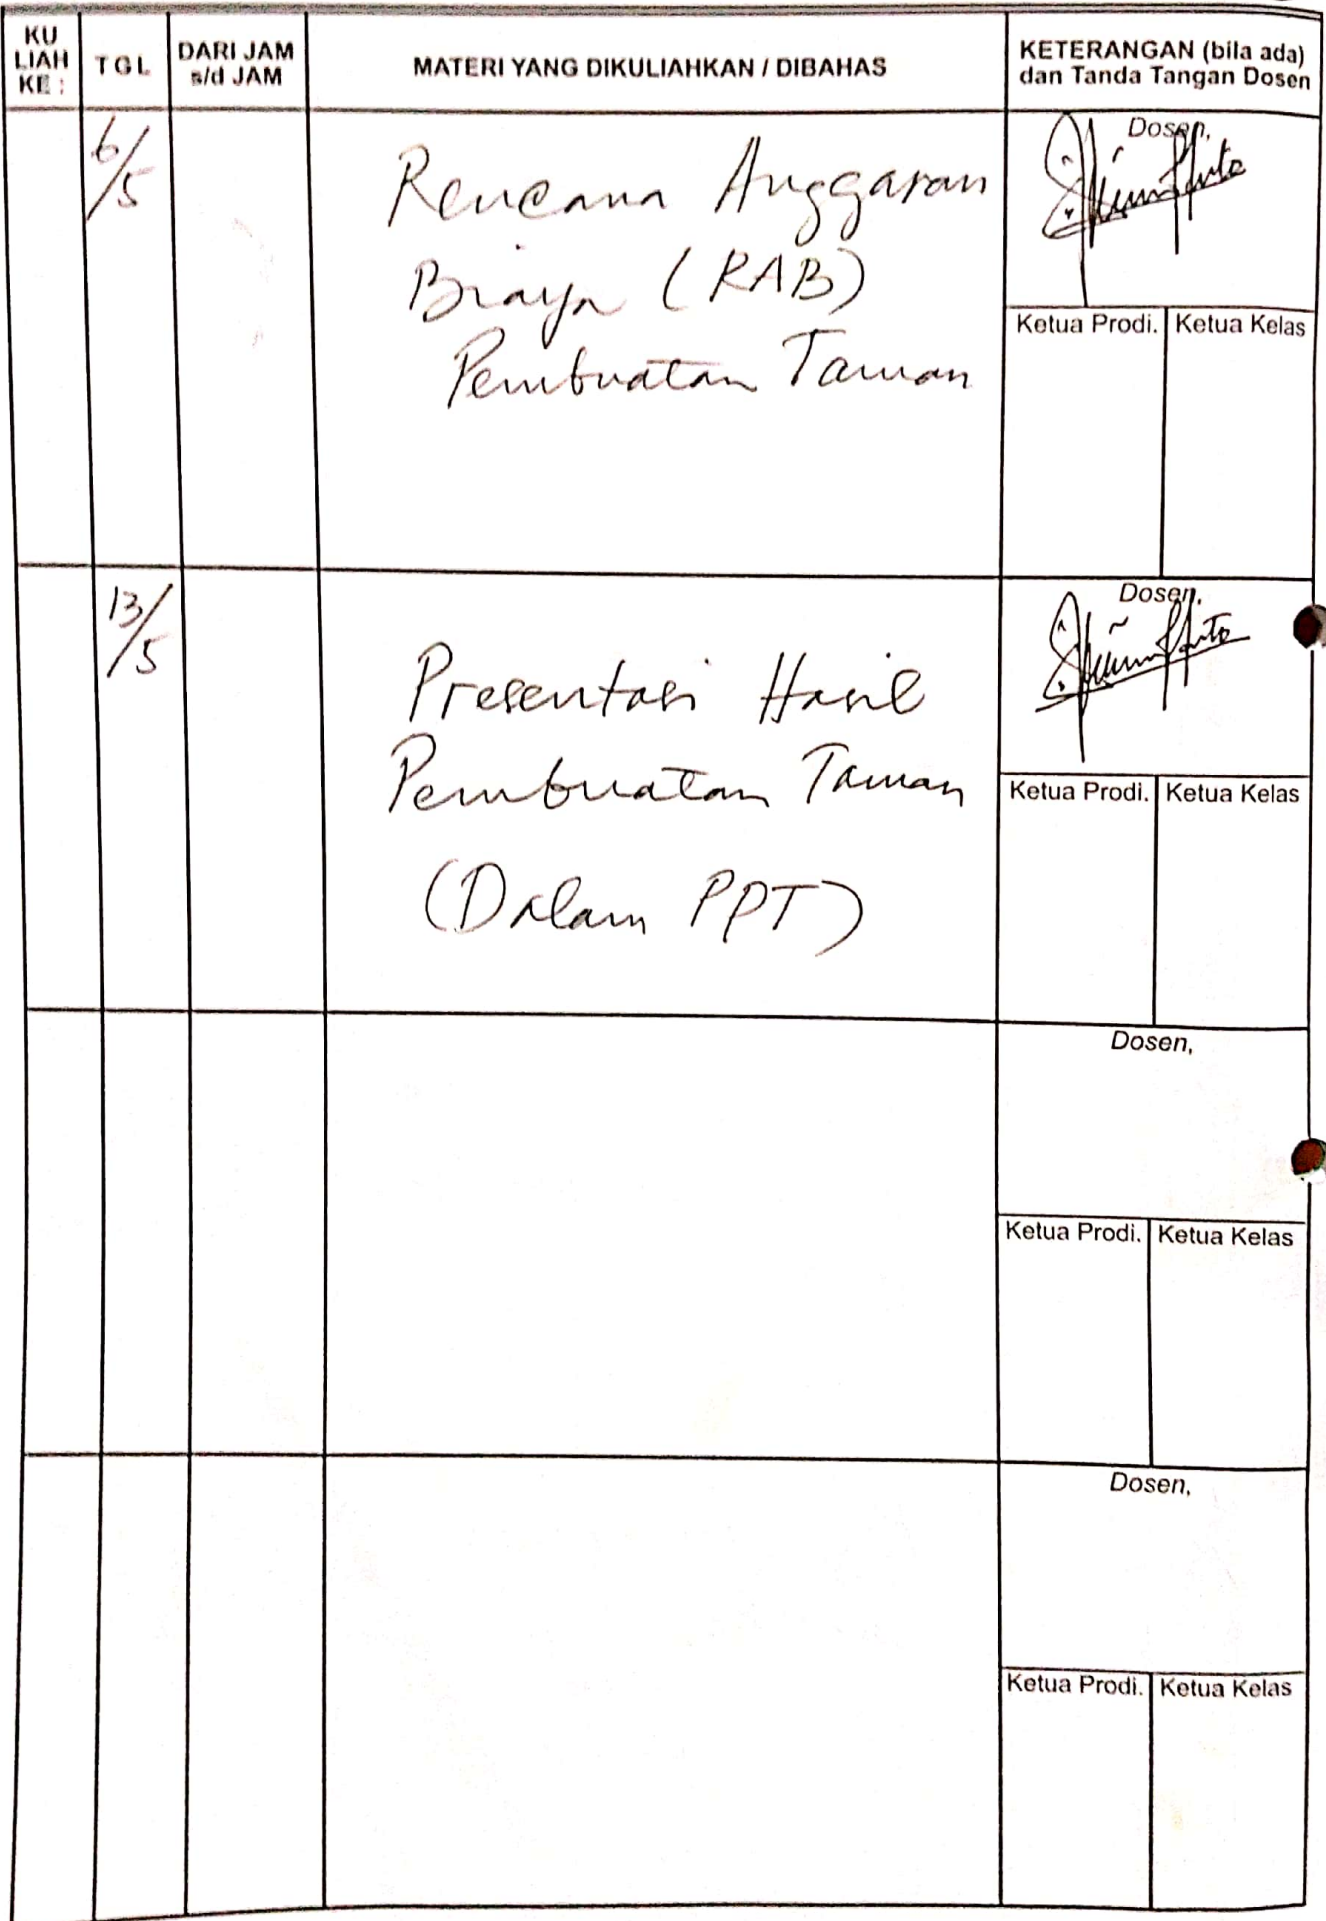 KU
LIAH
KE :
TGL
DARI JAM
s/d JAM
MATERI YANG DIKULIAHKAN / DIBAHAS
KETERANGAN (bila ada)
dan Tanda Tangan Dosen
6/5
Rencana Anggaran
Biaya (RAB)
Pembuatan Taman
Dosen,
Ketua Prodi. Ketua Kelas
13/5
Presentasi Hasil
Pembuatan Taman
(Dalam PPT)
Dosen,
Ketua Prodi. Ketua Kelas
Dosen,
Ketua Prodi. Ketua Kelas
Dosen,
Ketua Prodi. Ketua Kelas